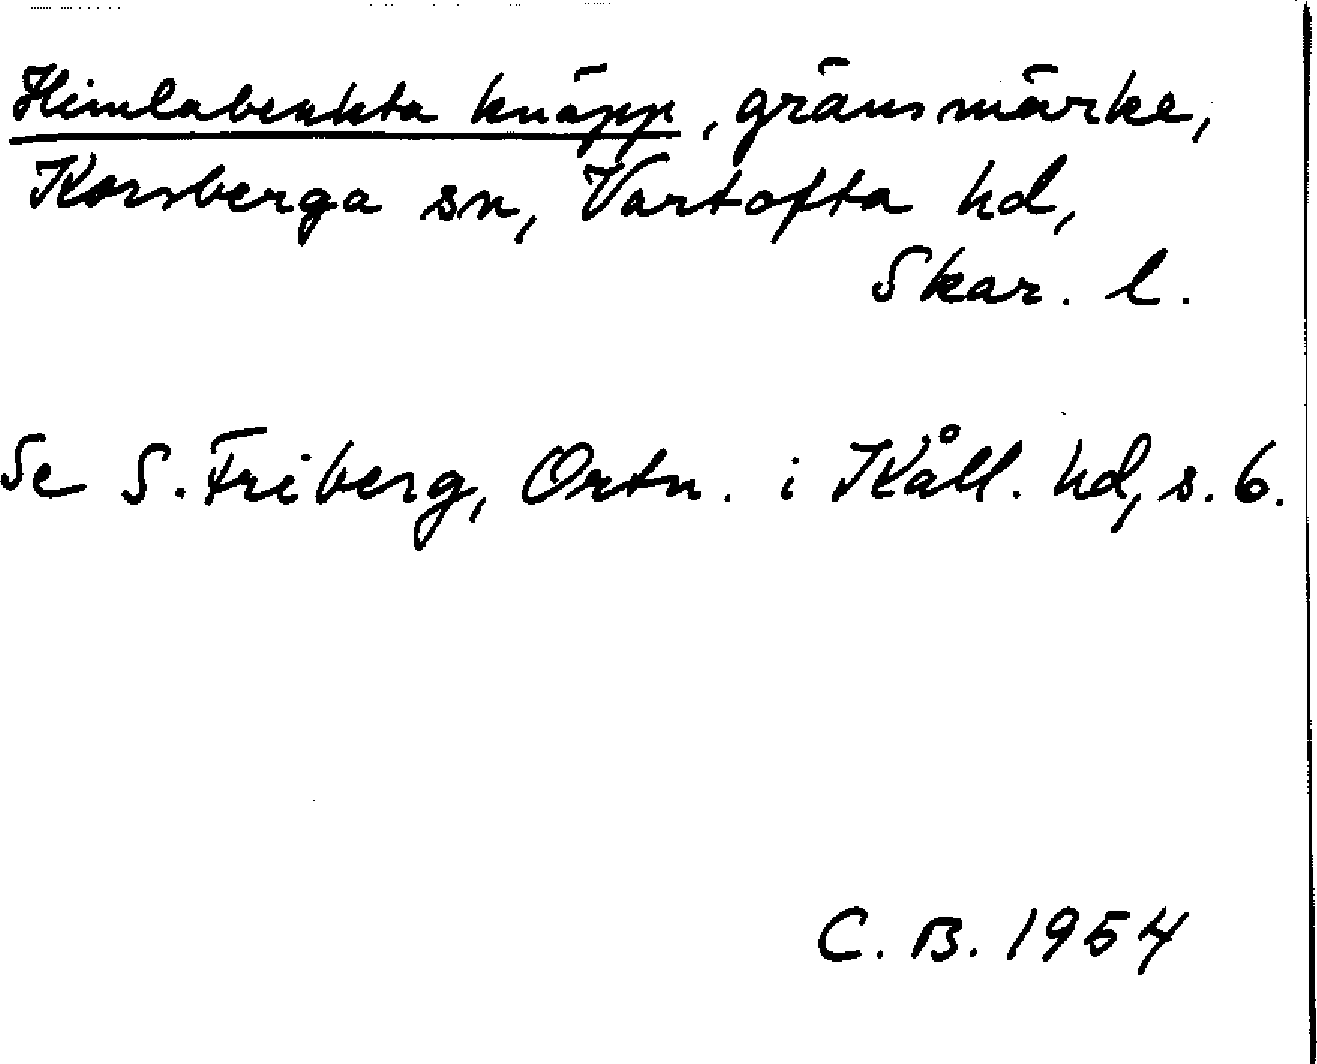 Himlabenkta knäpp, gränsmärke,
Korsberga sn, Vartofta hd,
Skar. l.
Se S. Friberg, Ortn. i Kåll. hd, s. 6.
C. B. 1954